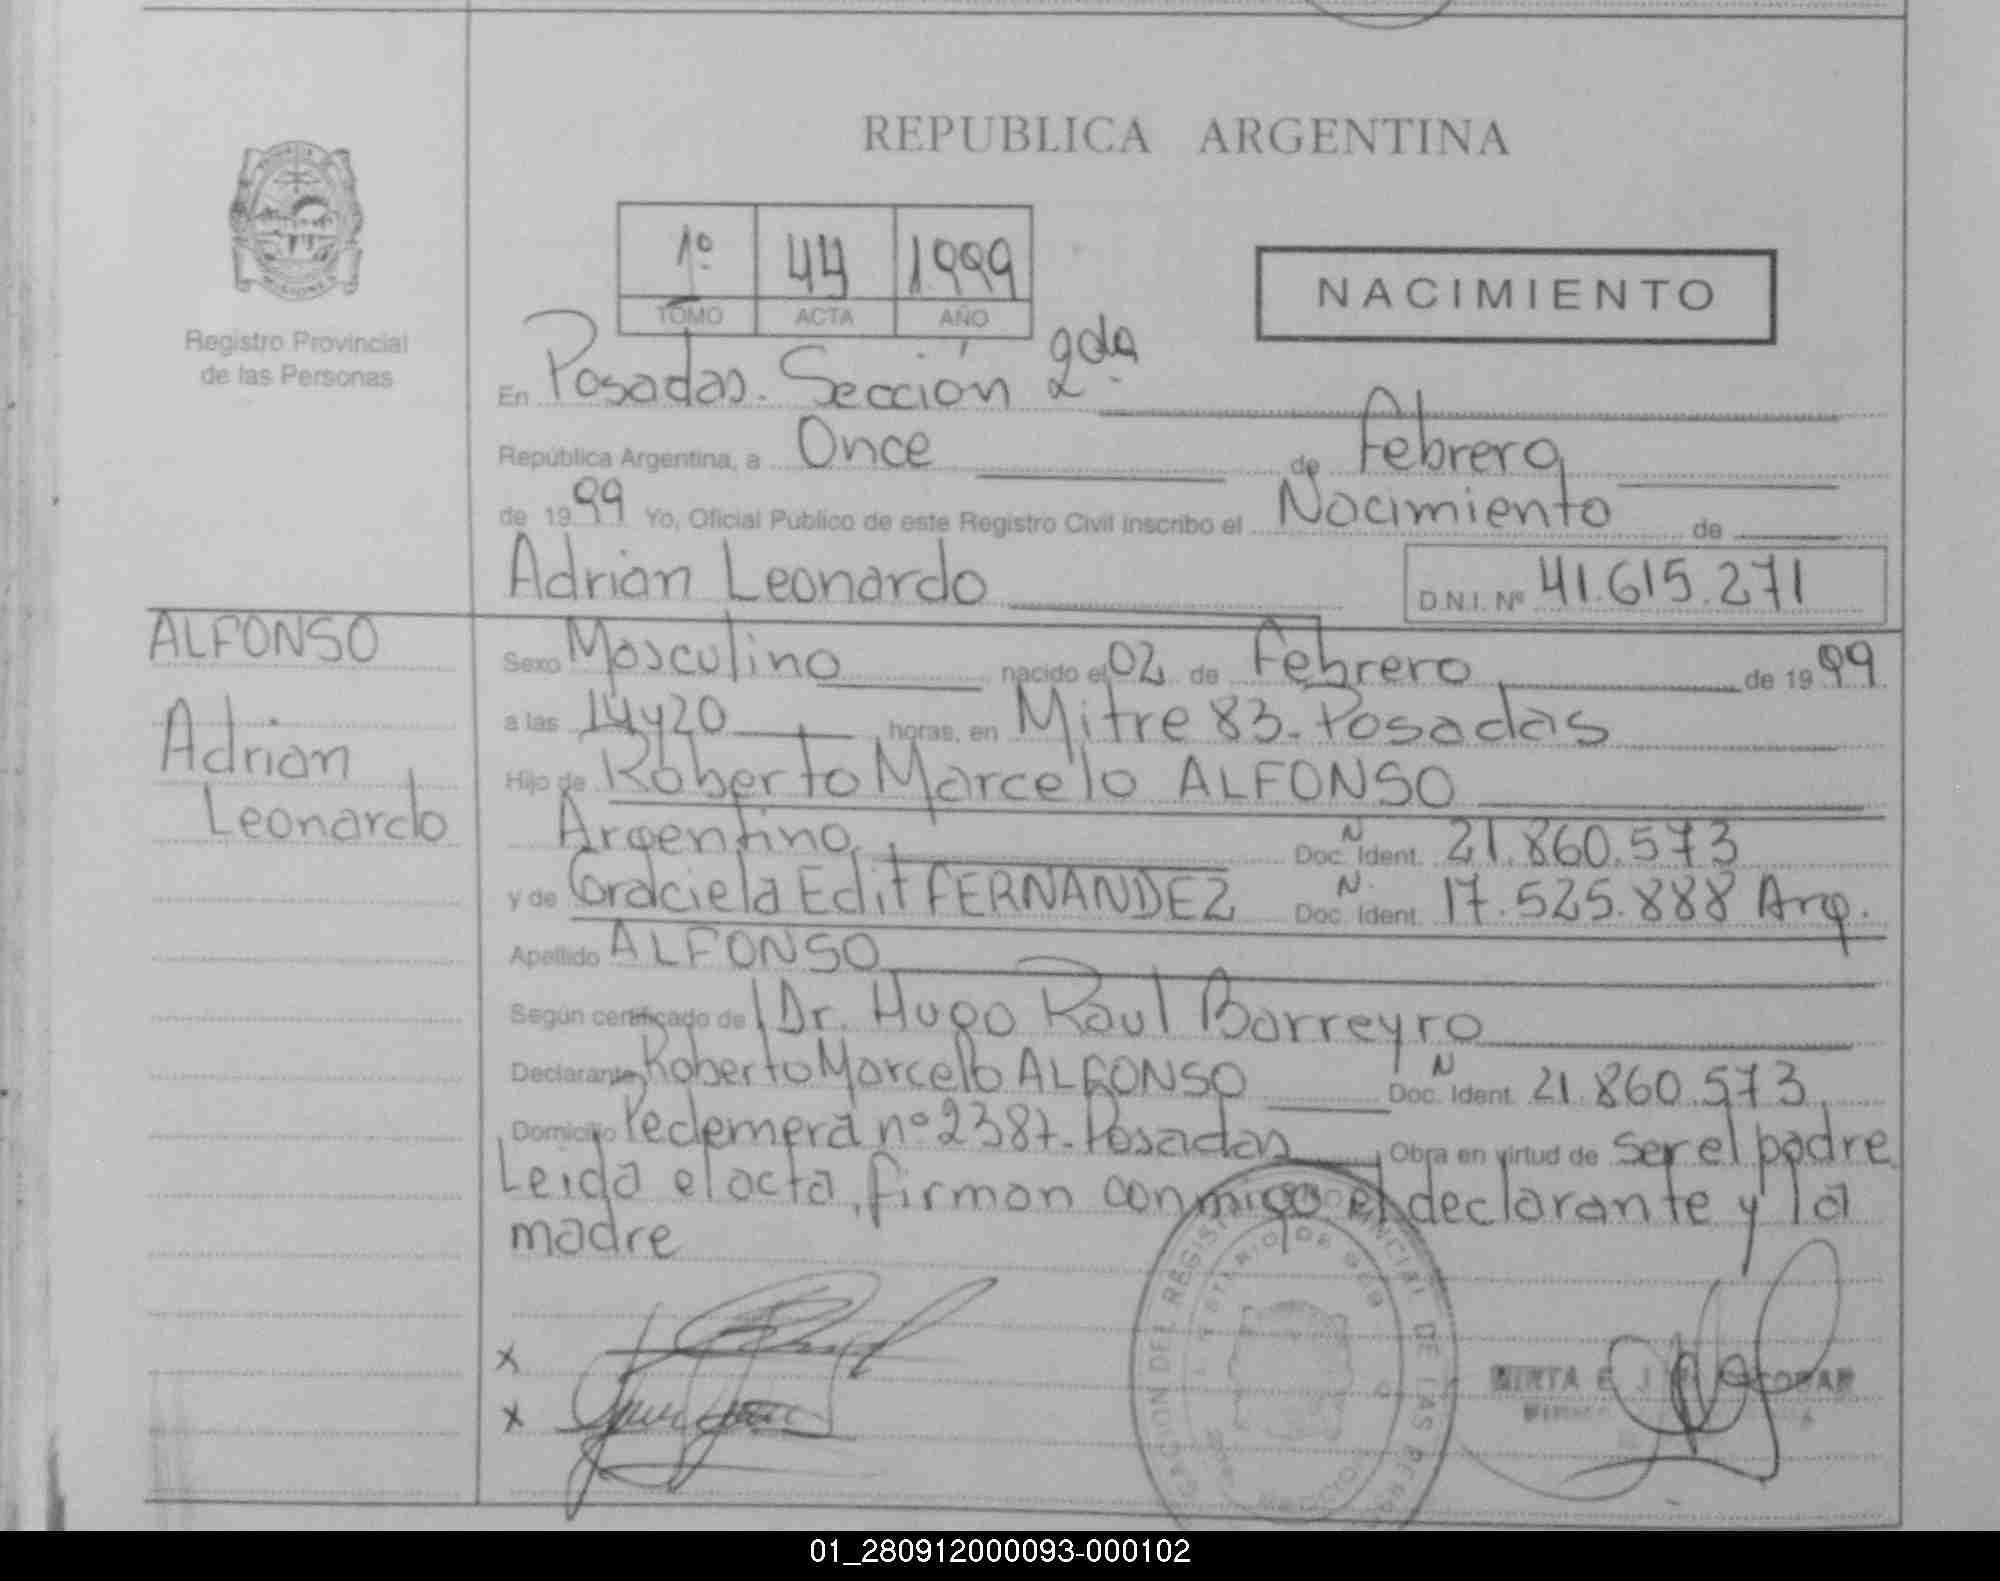 REPUBLICA ARGENTINA
1º 44 1999
TOMO ACTA AÑO
NACIMIENTO
Registro Provincial
de las Personas
En Posadas. Sección 2da
República Argentina, a Once de Febrero
de 1999 Yo, Oficial Publico de este Registro Civil inscribo el Nacimiento de
Adrian Leonardo D.N.I. Nº 41.615.271
ALFONSO
Adrian
Leonardo
Sexo Masculino nacido el 02 de Febrero de 1999
a las 14y20 horas, en Mitre 83. Posadas
Hijo de Roberto Marcelo ALFONSO
Argentino Doc. Ident. N 21.860.573
y de Graciela Edit FERNANDEZ Doc. Ident. N. 17.525.888 Arg.
Apellido ALFONSO
Según certificado de Dr. Hugo Raul Barreyro
Declarante Roberto Marcelo ALFONSO Doc. Ident. N 21.860.573
Domicilio nº 2387. Posadas Obra en virtud de ser el padre
Leida el acta, firman conmigo el declarante y la
madre
x
x
DEL REGIS DE LAS
MIRTA E
01_280912000093-000102